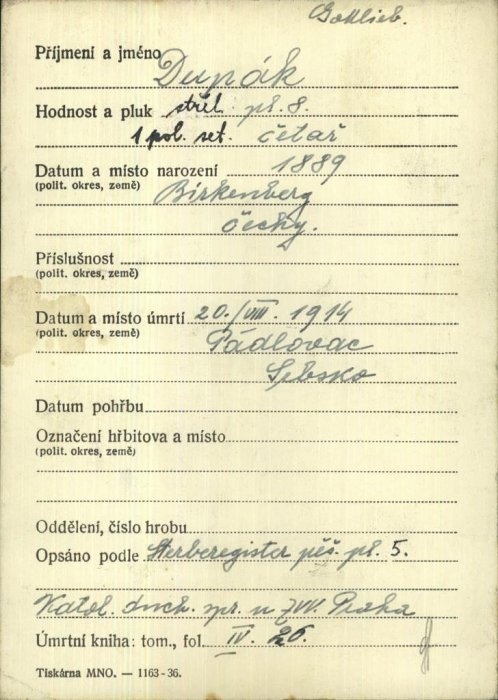 Gottlieb.
Příjmení a jméno
Dupák
Hodnost a pluk střel. pl. 8.
1 pol. set. četař
Datum a místo narození 1889
(polit. okres, země) Birkenberg
Čechy.
Příslušnost
(polit. okres, země)
Datum a místo úmrtí 20./VIII. 1914
(polit. okres, země) Pádlovac
Srbsko
Datum pohřbu
Označení hřbitova a místo
(polit. okres, země)
Oddělení, číslo hrobu
Opsáno podle Sterberegister pěš. pl. 5.
Katol. duch. spr. u ZVV. Praha
Úmrtní kniha: tom., fol. IV. 26.
Tiskárna MNO. — 1163-36.